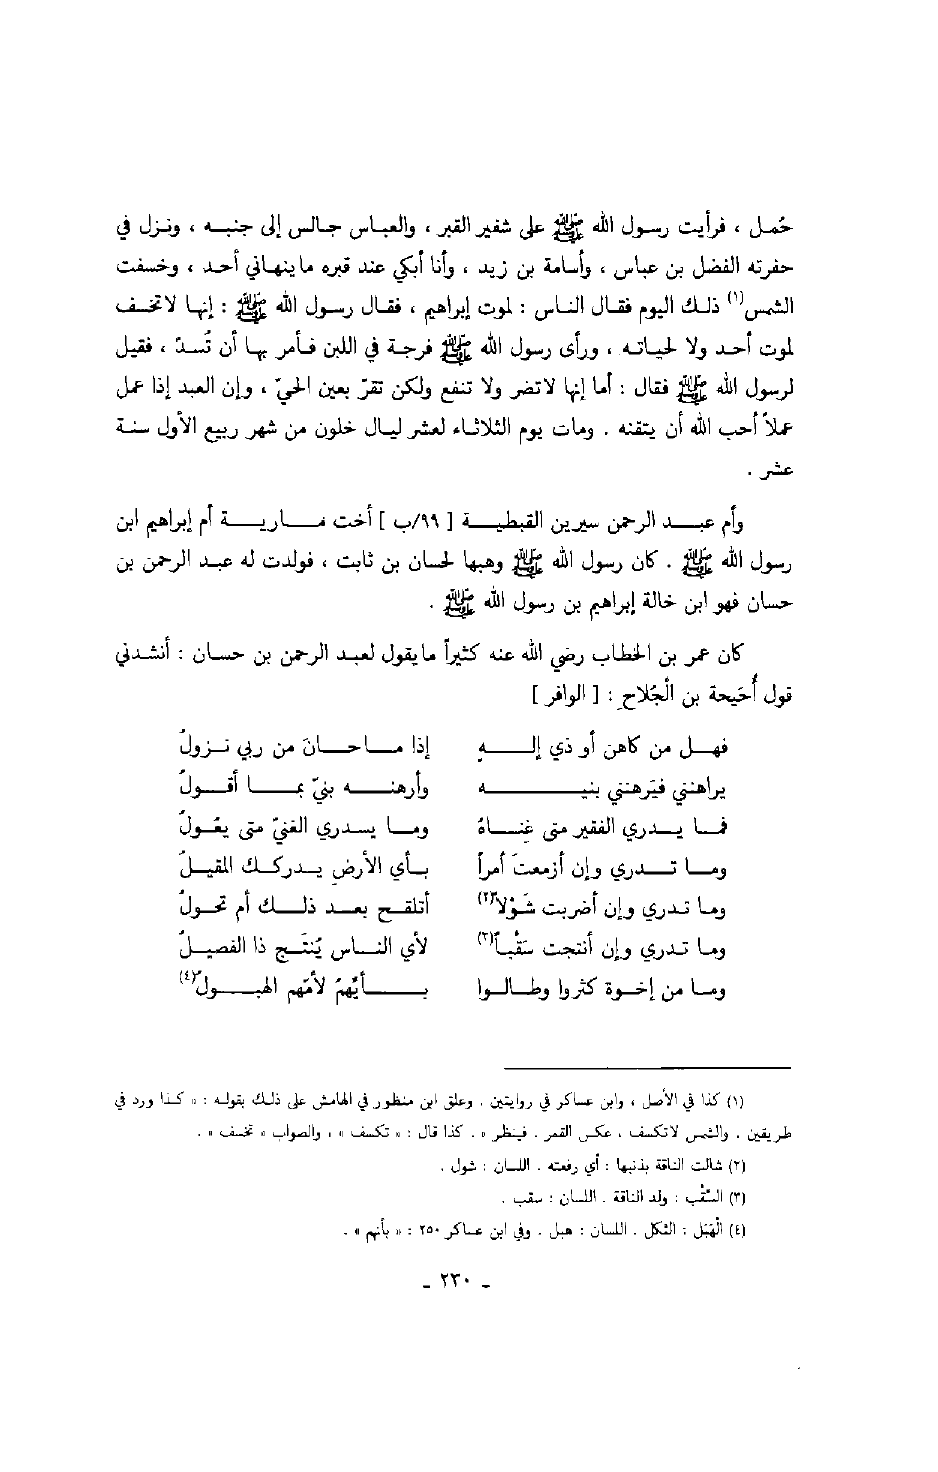 حُمل ، فرأيت رسول الله ﷺ على شفير القبر ، والعباس جالس إلى جنبه ، ونزل في
حفرته الفضل بن عباس ، وأسامة بن زيد ، وأنا أبكي عند قبره ماينهاني أحد ، وخسفت
الشمس(١) ذلك اليوم فقال الناس : لموت إبراهيم ، فقال رسول الله ﷺ : إنها لاتخسف
لموت أحد ولا لحياته ، ورأى رسول الله ﷺ فرجة في اللبن فأمر بها أن تُسدّ ، فقيل
لرسول الله ﷺ فقال : أما إنها لاتضر ولا تنفع ولكن تقرّ بعين الحيّ ، وإن العبد إذا عمل
عملاً أحب الله أن يتقنه . ومات يوم الثلاثاء لعشر ليال خلون من شهر ربيع الأول سنة
عشر .
وأم عبد الرحمن سيرين القبطية [ ٩٩/ب ] أخت مارية أم إبراهيم ابن
رسول الله ﷺ . كان رسول الله ﷺ وهبها لحسان بن ثابت ، فولدت له عبد الرحمن بن
حسان فهو ابن خالة إبراهيم بن رسول الله ﷺ .
كان عمر بن الخطاب رضي الله عنه كثيراً مايقول لعبد الرحمن بن حسان : أنشدني
قول أُحَيحة بن الْجُلاح : [ الوافر ]
فهل من كاهن أو ذي إلهٍ إذا ماحانَ من ربي نزولُ
يراهنني فيَرهنني بنيه وأرهنه بنيّ بما أقولُ
فما يدري الفقير متى غِناهُ وما يدري الغنيّ متى يعُولُ
وما تدري وإن أزمعتَ أمراً بأي الأرضِ يدركك المقيلُ
وما تدري وإن أضربت شَوْلاً(٢) أتلقح بعد ذلك أم تحولُ
وما تدري وإن أنتجت سَقْباً(٣) لأي الناس يُنتَج ذا الفصيلُ
وما من إخوة كثروا وطالوا بأيّهمُ لأمّهم الهبولُ(٤)
(١) كذا في الأصل ، وابن عساكر في روايتين . وعلق ابن منظور في الهامش على ذلك بقوله : « كذا ورد في
طريقين . والشمس لاتكسف ، عكس القمر . فينظر » . كذا قال : « تكسف » ، والصواب « تخسف » .
(٢) شالت الناقة بذنبها : أي رفعته . اللسان : شول .
(٣) السَّقْب : ولد الناقة . اللسان : سقب .
(٤) الْهَبَل : الثكل . اللسان : هبل . وفي ابن عساكر ٢٥٠ : « بأنهم » .
ـ ٢٣٠ ـ